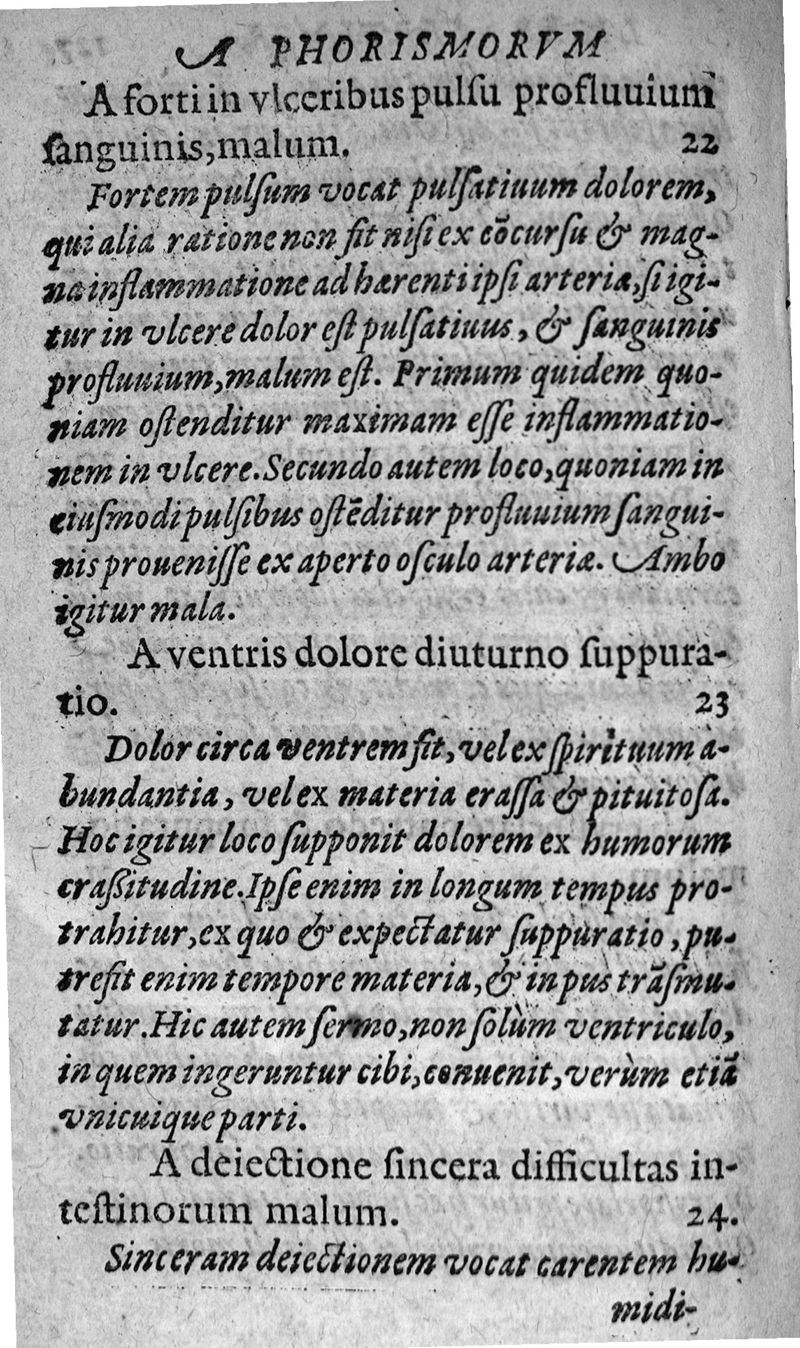 APHORISMORVM
A forti in vlceribus pulſu profluuium
ſanguinis, malum. 22
Fortem pulſum vocat pulſatiuum dolorem,
qui alia ratione non fit niſi ex cōcurſu & mag-
na inflammatione adhærenti ipſi arteriæ, ſi igi-
tur in vlcere dolor eſt pulſatiuus, & ſanguinis
profluuium, malum eſt. Primum quidem quo-
niam oſtenditur maximam eſſe inflammatio-
nem in vlcere. Secundo autem loco, quoniam in
eiuſmodi pulſibus oſtēditur profluuium ſangui-
nis proueniſſe ex aperto oſculo arteriæ. Ambo
igitur mala.
A ventris dolore diuturno ſuppura-
tio. 23
Dolor circa ventrem fit, vel ex ſpirituum a-
bundantia, vel ex materia eraſſa & pituitoſa.
Hoc igitur loco ſupponit dolorem ex humorum
craßitudine. Ipſe enim in longum tempus pro-
trahitur, ex quo & expectatur ſuppuratio, pu-
trefit enim tempore materia, & in pus trāſmu-
tatur. Hic autem ſermo, non ſolùm ventriculo,
in quem ingeruntur cibi, conuenit, verùm etiā
vnicuique parti.
A deiectione ſincera difficultas in-
teſtinorum malum. 24.
Sinceram deiectionem vocat carentem hu-
midi-